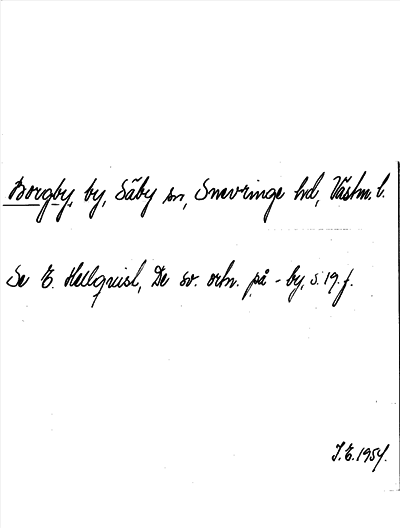 Borgby, by, Säby sn, Snevringe hd, Västm. l.
Se E. Hellquist, De sv. ortn. på -by, s. 19 f.
J.E. 1954.